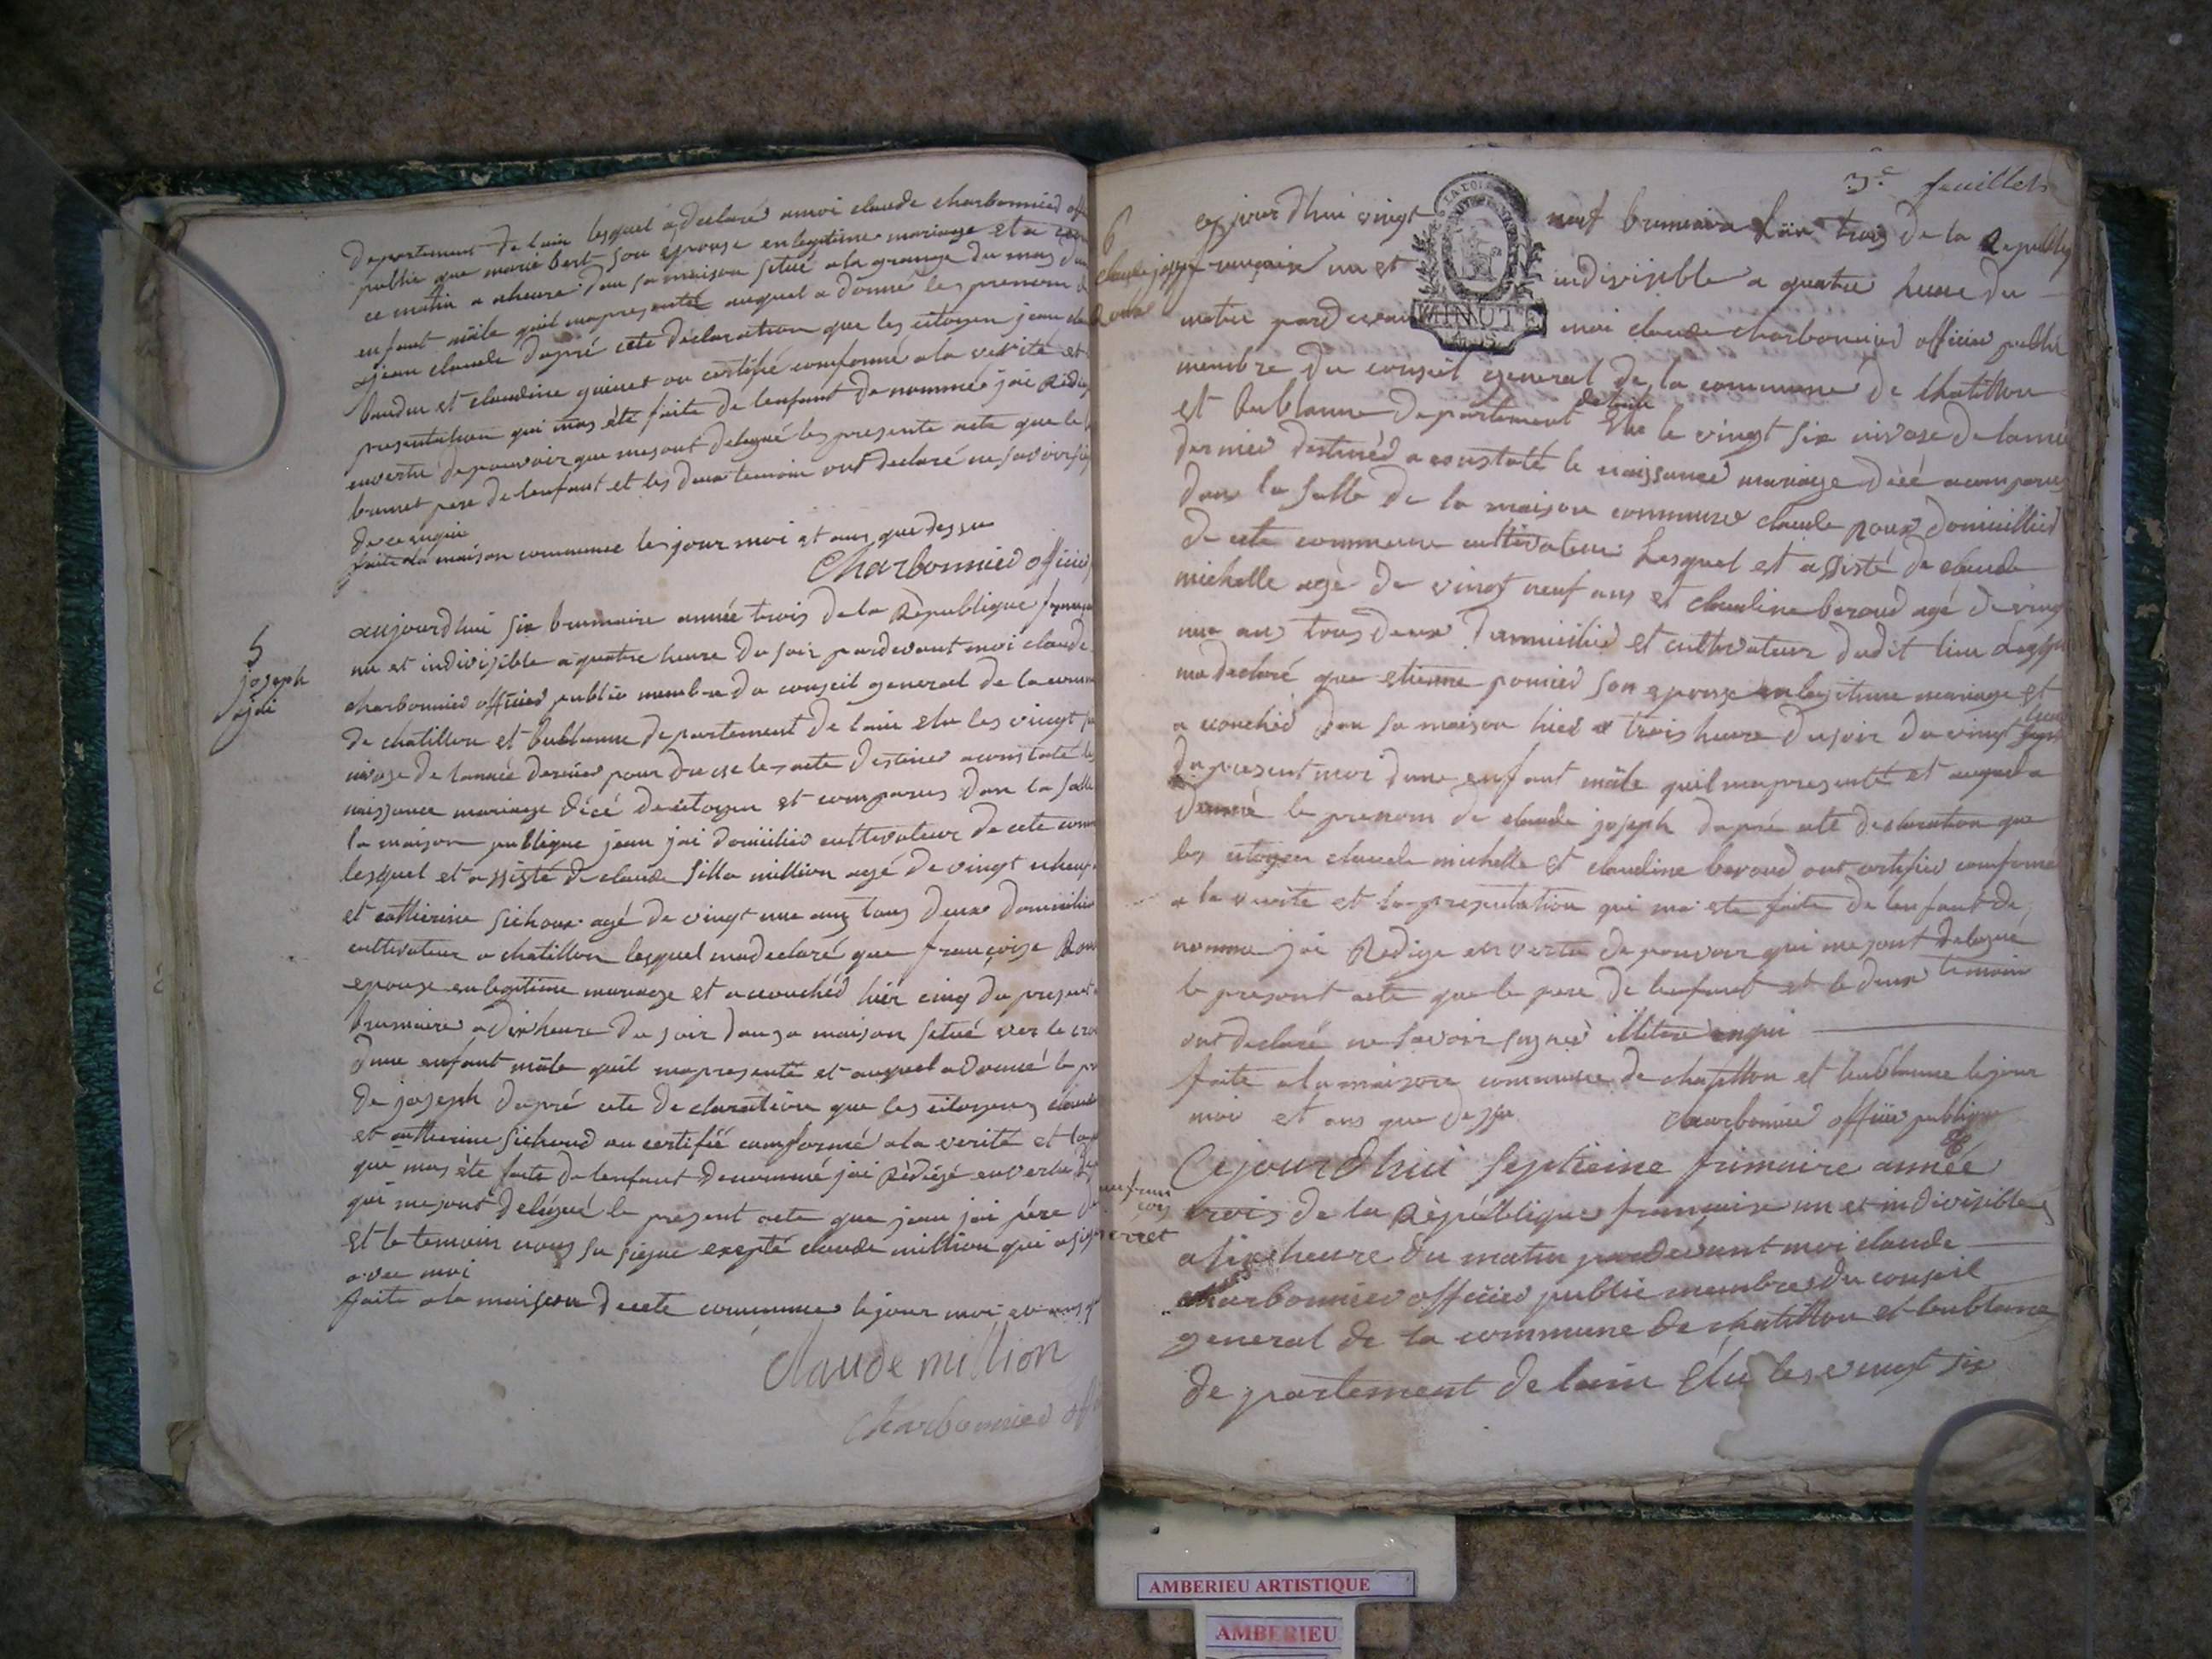 departement de lain lesquel a declaré amoi claude charbonnied
publie que marie bert son epouse enlegitime mariage et a
ce matin a heure dan sa maison situé a la grange du mas
enfant mâle quil mapresenté auquel a donné les prenom
jean claude dapré cete declaration que les citoyen jean
baudu et claudine guinet on certifié comformé a la verité et
presentation qui mas été faite de lenfant denommé jai
envertu depouvoir que mesont delegué les presente acte que le
brunet pere de lenfant et les deux temoin ont declaré ne savoir
de ce enquir
faite ala maison commune les jour moi et ans que dessu
Charbonnied officier
5
joseph
jai
aujourdhui six brumaire année trois de la République
un et indivisible a quatre heure du soir pardevant moi claude
charbonnied officied publie membre du conseil general de la
de chatillon et bublanne departement de lain elu les vingt
nivose de lannée dernier pour dresse les acte destiner aconstaté les
naissance mariage décé de citoyen et comparus dan la salle
la maison publique jean jai domicilié cultivateur de cete
lesquel et assisté de claude million agé de vingt
et catherine sichoux agé de vingt une ans tous deux domicilié
cultivateur a chatillon lesquel madeclaré que françoise
epouse enlegitime mariage et accouchéd hier cinq du present
brumaire a dix heure du soir dan sa maison situé ver le
dune enfant mâle quil mapresenté et auquel adonné le
de joseph dapré cete declaration que les citoyens
et catherine sichoud on certifié comformé a la verité et
que mas été faite de lenfant denommé jai rédigé envertu
qui mesont delégué le present acte que jean jai père
et le temoin nous su signé exepté claude million qui a
avec moi
faite ala maison de cete commune le jour moi et ans
claude million
Charbonnied
3e feuillets
6
claude
Roux
cejourdhui vingt neuf brumaire lan trois de la
française un et indivisible a quatre heure du
matin pardevan moi claude charbonnied officier publie
membre du conseil general de la commune de Chatillon
et bublanne departement de lain elu le vingt six nivose de lannée
dernied destinéd a constaté le naissance mariage décé acomparus
dans la salle de la maison commune claude roux domicillied
de cete commune cultivateur lesquel est assisté de claude
michelle agé de vingt neuf ans et claudine beroud agé de vingt
une ans tous deux domicilied et cultivateur dudit lieu
ma declaré que etienne ponied son epouse en legitime mariage et
a couchéd dan sa maison hied a trois heure du soir du vingt
du present moi dune enfant mâle quil mapresenté et auquel a
donné le prenom de claude joseph dapré cete declaration que
les citoyen claude michelle et claudine beroud ont certified comforme
a la verité et la presentation qui ma ete faite de lenfant de
nomme jai Redige en vertu de pouvoir qui mesont delegué
le present acte que le pere de lenfant et le deux temoin
ont declaré ne savoir signed
faite ala maison commune de chatillon et bublanne lejour
moi et ans que dessu
Charbonnied officier publique
Cejourdhui septieme frimaire année
trois de la République française un et indivisible
a six heure du matin pardevant moi claude
charbonnied officied publie membre du conseil
general de la commune de chatillon et bublane
departement de lain élu les vingt six
LA LOI
MINUTE
AMBERIEU ARTISTIQUE
AMBERIEU